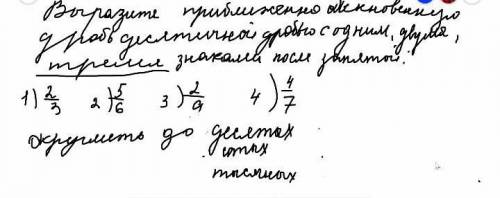 Выразите приближенно обыкновенную
дробь десятичной дробью с одним, двумя,
тремя знаками после запятой.
1) 2/3 2) 5/6 3) 2/9 4) 4/7
округлить до десятых
сотых
тысячных